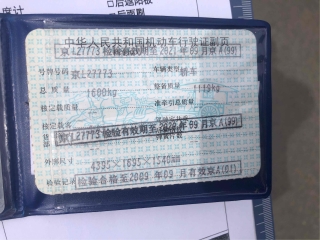 后遮阳板
度计
中华人民共和国机动车行驶证副页
京L27773 检验有效期至 2021年09月京A(99)
号牌号码 京L27773 车辆类型 轿车
总质量 1600kg 整备质量 1115kg
核定载质量 准牵引总质量
核定载客
京L27773 检验有效期至 2020年09月京A(99)
外廓尺寸 4395×1695×1540mm
检验记录 检验合格至2009年09月有效京A(01)